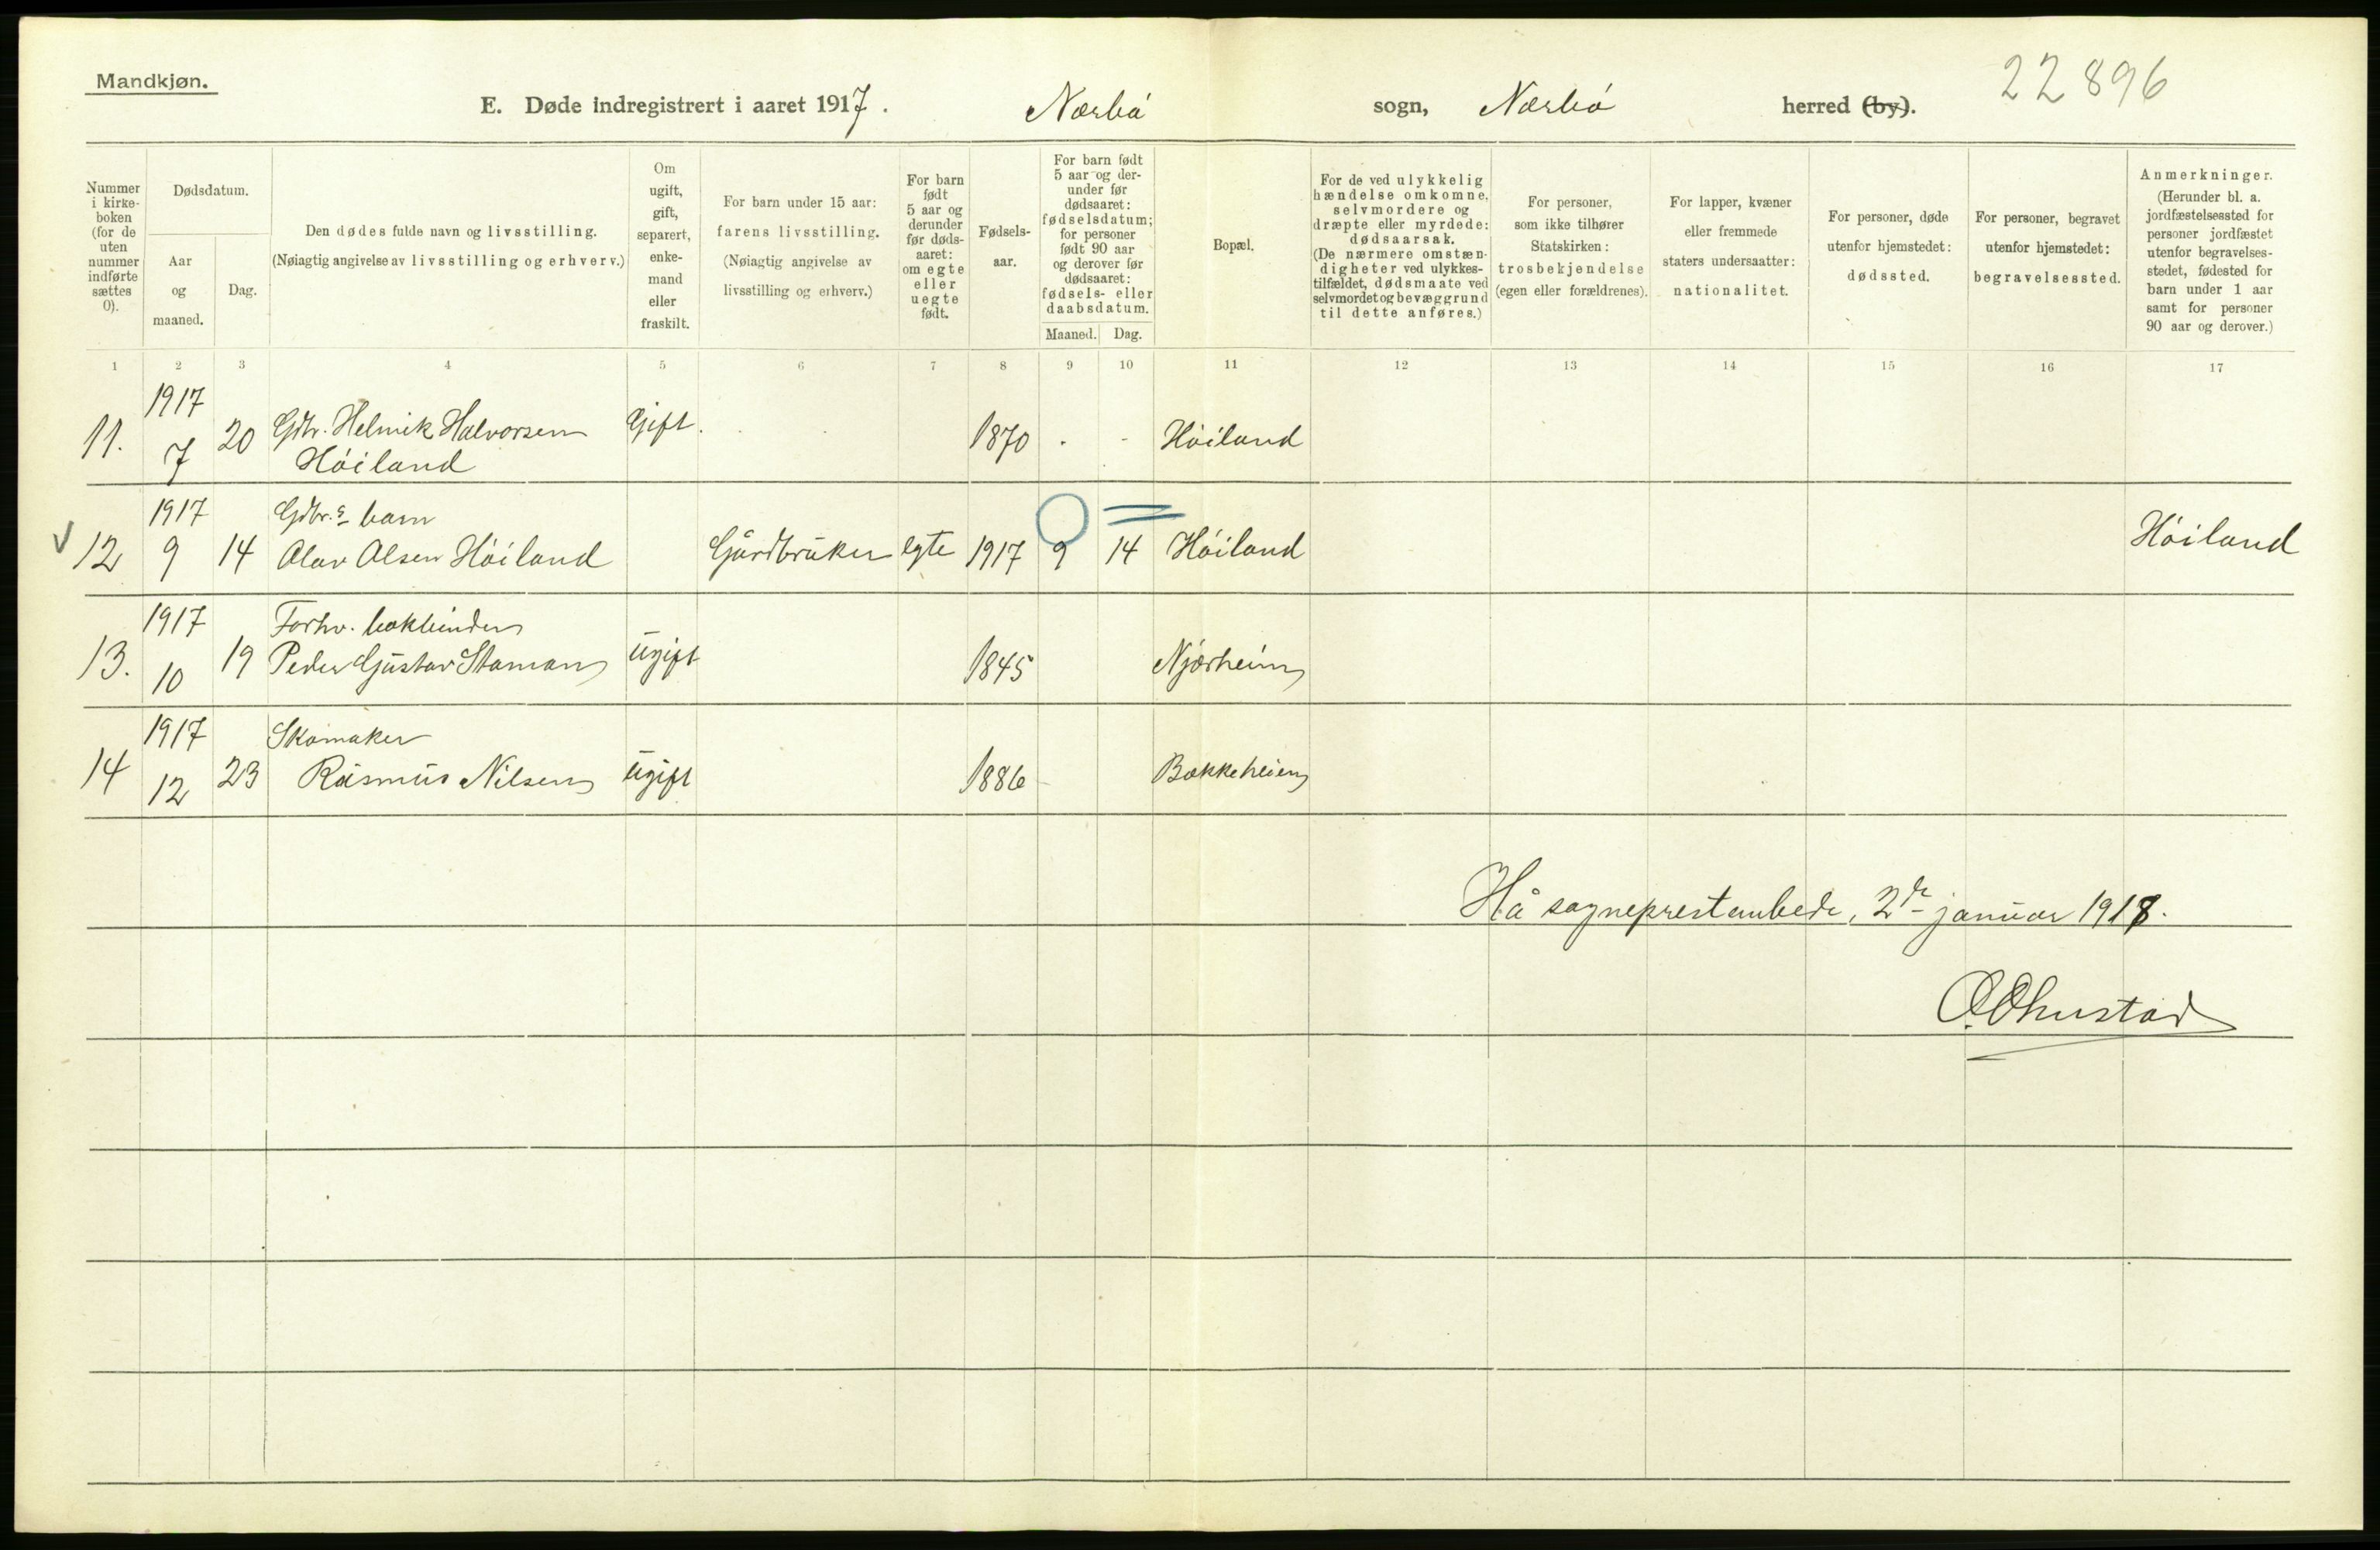 Mandkjøn.
22896
E. Døde indregistrert i aaret 1917. Nærbø sogn, Nærbø herred (by).
Nummer i kirke-boken (for de uten nummer indførte sættes 0).
Dødsdatum.
Aar og maaned.
Dag.
Den dødes fulde navn og livsstilling.
(Nøiagtig angivelse av livsstilling og erhverv.)
Om ugift, gift, separert, enke-mand eller fraskilt.
For barn under 15 aar:
farens livsstilling.
(Nøiagtig angivelse av livsstilling og erhverv.)
For barn født 5 aar og derunder før døds-aaret: om egte eller uegte født.
Fødsels-aar.
For barn født 5 aar og der-under før dødsaaret: fødselsdatum; for personer født 90 aar og derover før dødsaaret: fødsels- eller daabsdatum.
Maaned. Dag.
Bopæl.
For de ved ulykkelig hændelse omkomne, selvmordere og dræpte eller myrdede: dødsaarsak.
(De nærmere omstæn-digheter ved ulykkes-tilfældet, dødsmaate ved selvmordet og bevæggrund til dette anføres.)
For personer, som ikke tilhører Statskirken: trosbekjendelse (egen eller forældrenes).
For lapper, kvæner eller fremmede staters undersaatter: nationalitet.
For personer, døde utenfor hjemstedet: dødssted.
For personer, begravet utenfor hjemstedet: begravelsessted.
Anmerkninger.
(Herunder bl. a. jordfæstelsessted for personer jordfæstet utenfor begravelses-stedet, fødested for barn under 1 aar samt for personer 90 aar og derover.)
1 2 3 4 5 6 7 8 9 10 11 12 13 14 15 16 17
1917
11. 7 20 Gdbr. Helmik Halvorsen Gift. 1870 . - Høiland
Høiland
1917 Gdbr.s barn
V 12 9 14 Olav Olsen Høiland Gårdbruker egte 1917 9 14 Høiland Høiland
1917 Forhv. bokbinder
13. 10 19 Peder Gustav Staman ugift 1845 Njærheim
1917 Skomaker
14 12 23 Rasmus Nilsen ugift 1886 Bokkeheien
Hå sogneprestembede, 2de januar 1918.